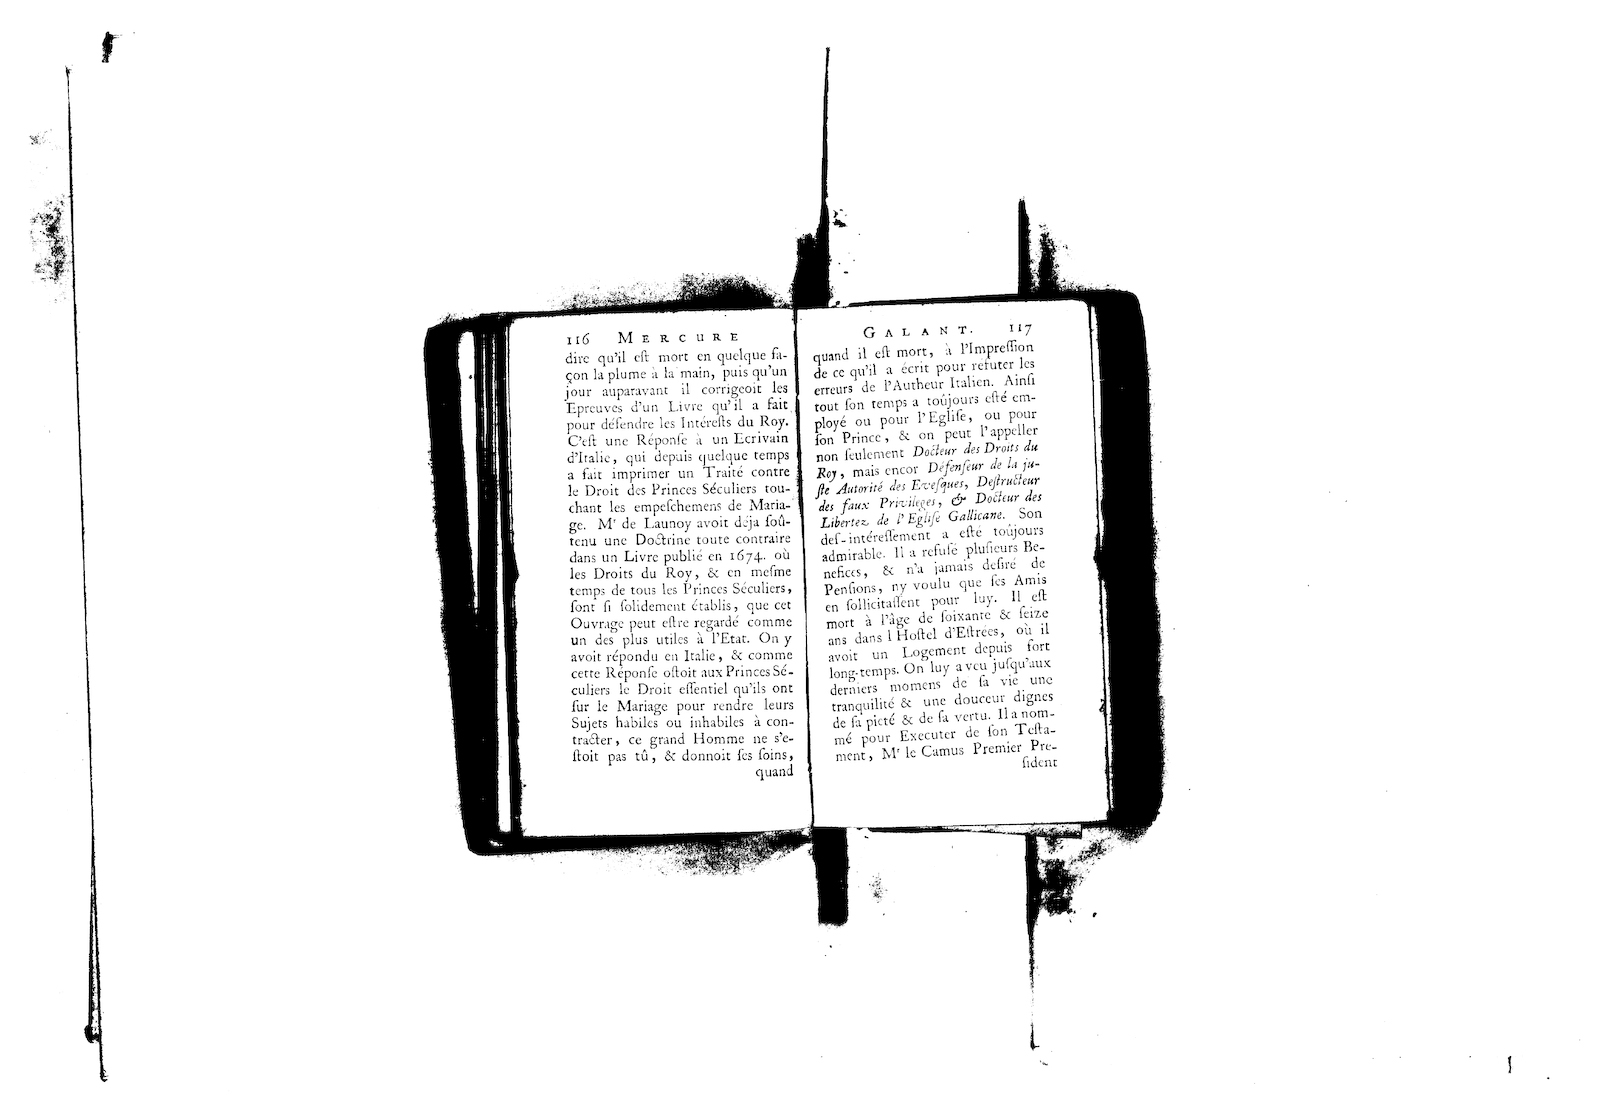 116 MERCURE
dire qu'il eſt mort en quelque fa-
çon la plume à la main, puis qu'un
jour auparavant il corrigeoit les
Epreuves d'un Livre qu'il a fait
pour défendre les Intéreſts du Roy.
C'eſt une Réponſe à un Ecrivain
d'Italie, qui depuis quelque temps
a fait imprimer un Traité contre
le Droit des Princes Séculiers tou-
chant les empeſchemens de Maria-
ge. Mr de Launoy avoit déja ſoû-
tenu une Doctrine toute contraire
dans un Livre publié en 1674. où
les Droits du Roy, & en meſme
temps de tous les Princes Séculiers,
ſont ſi ſolidement établis, que cet
Ouvrage peut eſtre regardé comme
un des plus utiles à l'Etat. On y
avoit répondu en Italie, & comme
cette Réponſe oſtoit aux Princes Sé-
culiers le Droit eſſentiel qu'ils ont
ſur le Mariage pour rendre leurs
Sujets habiles ou inhabiles à con-
tracter, ce grand Homme ne s'e-
ſtoit pas tû, & donnoit ſes ſoins,
quand
GALANT. 117
quand il eſt mort, à l'Impreſſion
de ce qu'il a écrit pour refuter les
erreurs de l'Autheur Italien. Ainſi
tout ſon temps a toûjours eſté em-
ployé ou pour l'Egliſe, ou pour
ſon Prince, & on peut l'appeller
non ſeulement Docteur des Droits du
Roy, mais encor Défenſeur de la ju-
ſte Autorité des Eveſques, Deſtructeur
des faux Privileges, & Docteur des
Libertez de l'Egliſe Gallicane. Son
deſ-intéreſſement a eſté toûjours
admirable. Il a refuſé pluſieurs Be-
nefices, & n'a jamais deſiré de
Penſions, ny voulu que ſes Amis
en ſollicitaſſent pour luy. Il eſt
mort à l'âge de ſoixante & ſeize
ans dans l'Hoſtel d'Eſtrées, où il
avoit un Logement depuis fort
long-temps. On luy a veu juſqu'aux
derniers momens de ſa vie une
tranquilité & une douceur dignes
de ſa pieté & de ſa vertu. Il a nom-
mé pour Executer de ſon Teſta-
ment, Mr le Camus Premier Pre-
ſident